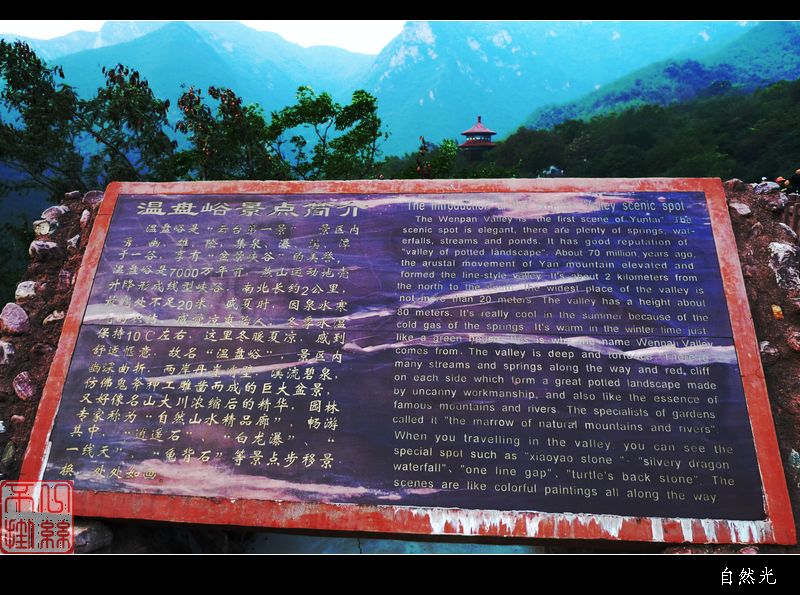 温盘峪景点简介
温盘峪是“云台第一景”，景区内
秀、幽、雄、险，集泉、瀑、溪、潭
于一谷，享有“盆景峡谷”的美誉，
温盘峪是7000万年前，燕山运动地壳
升降形成线型峡谷，南北长约2公里，
不足20米，盛夏时，因泉水寒
冬季水温
保持10℃左右，这里冬暖夏凉，感到
舒适惬意，故名“温盘峪”。景区内
幽深曲折，两岸丹崖 ，溪流碧泉，
仿佛鬼斧神工雕凿而成的巨大盆景，
又好像名山大川浓缩后的精华，园林
专家称为“自然山水精品廊”，畅游
其中，“逍遥石”、“白龙瀑”、“
一线天”、“龟背石”等景点步移景
换，处处如画。
The introduction of the Valley scenic spot
The Wenpan Valley is "the first scene of Yuntia". The
scenic spot is elegant, there are plenty of springs, wat-
erfalls, streams and ponds. It has good reputation of
"valley of potted landscape". About 70 million years ago,
the grustal movement of Yan mountain elevated and
formed the line-style valley. It's about 2 kilometers from
the north to the south, the widest place of the valley is
not more than 20 meters. The valley has a height about
80 meters. It's really cool in the summer because of the
cold gas of the springs. It's warm in the winter time just
like a green house, this is why the name Wenpan Valley
comes from. The valley is deep and There're
many streams and springs along the way and red cliff
on each side which form a great potted landscape made
by uncanny workmanship, and also like the essence of
famous mountains and rivers. The specialists of gardens
called it "the marrow of natural mountains and rivers".
When you travelling in the valley, you can see the
special spot such as "xiaoyao stone"、"silvery dragon
waterfall"、"one line gap"、"turtle's back stone". The
scenes are like colorful paintings all along the way
自然光